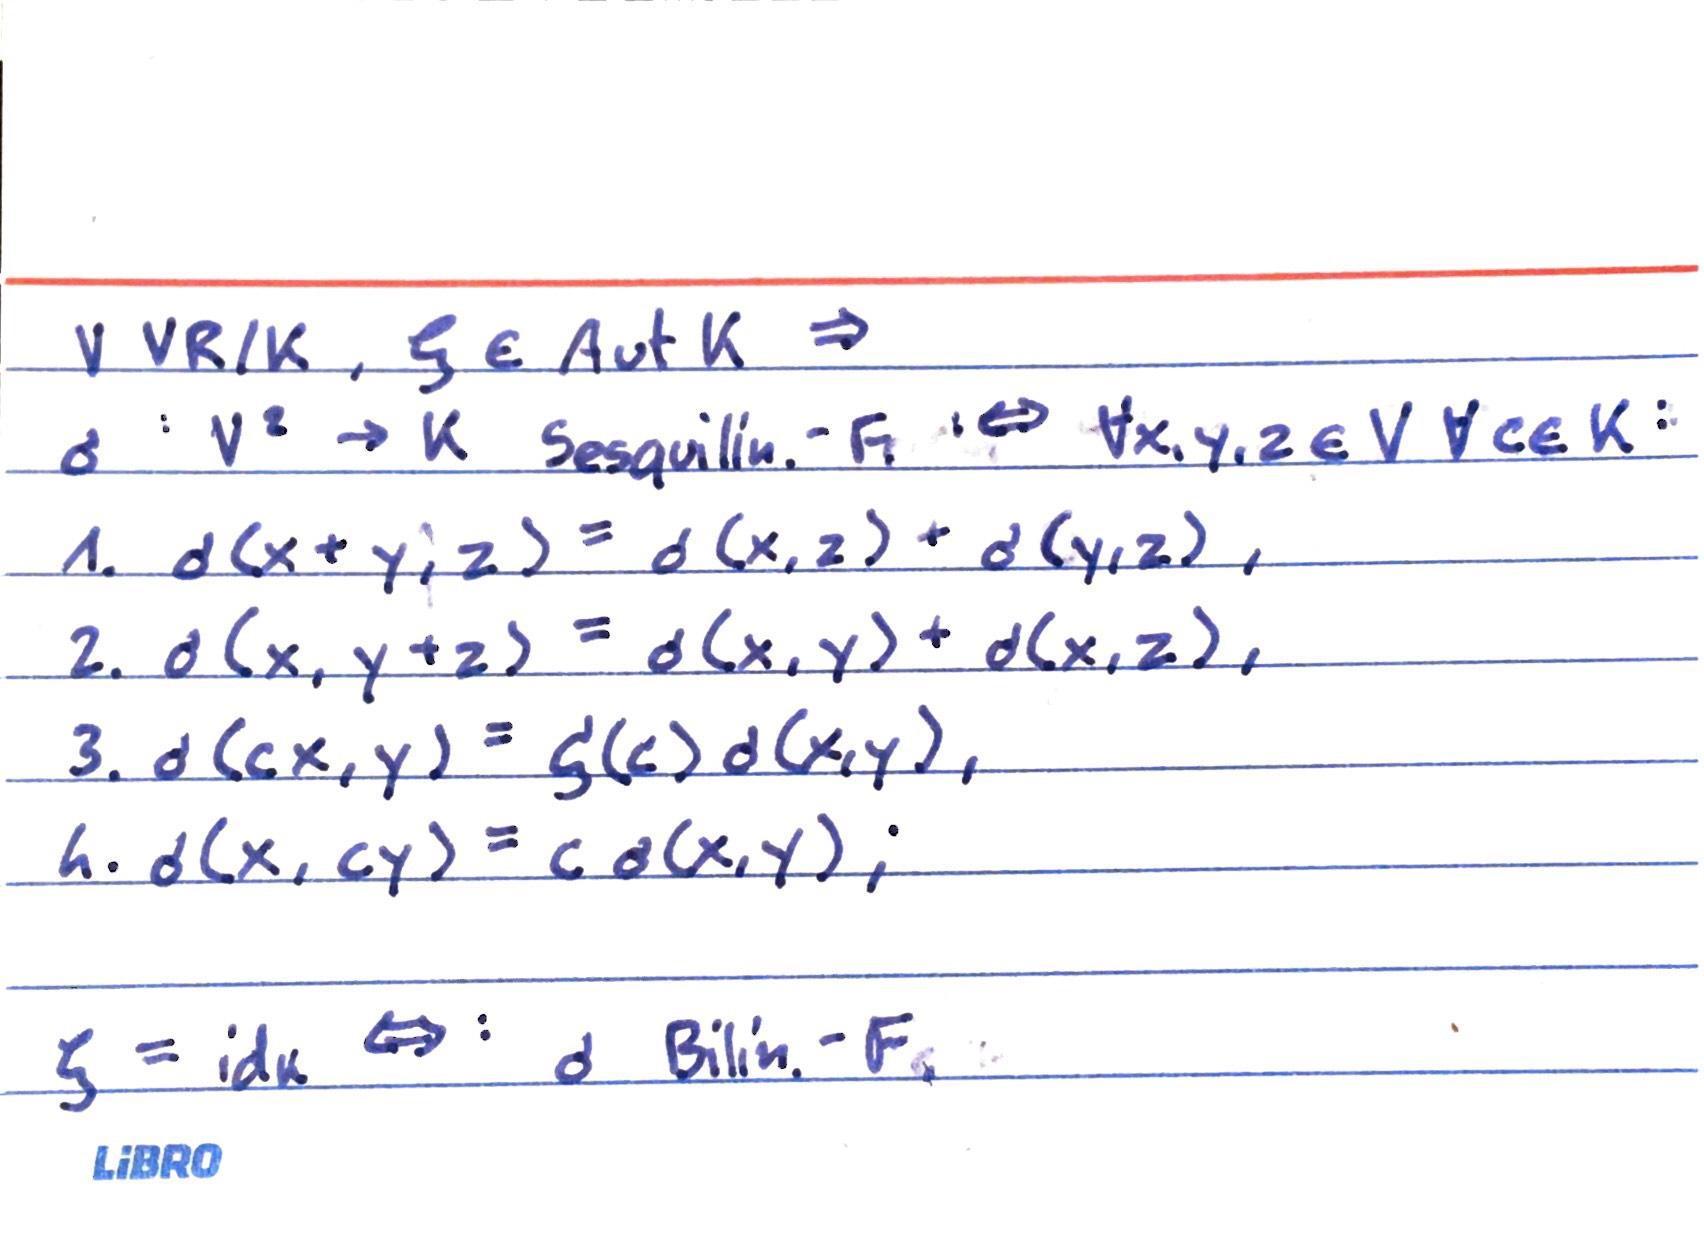 V VR/K, ζ ∈ Aut K ⇒
σ : V² → K Sesquilin.-F. :⇔ ∀x,y,z ∈ V ∀c∈K:
1. σ(x+y,z) = σ(x,z) + σ(y,z),
2. σ(x,y+z) = σ(x,y) + σ(x,z),
3. σ(cx,y) = ζ(c) σ(x,y),
4. σ(x,cy) = c σ(x,y);
ζ = idK ⇔: σ Bilin.-F.
LiBRO